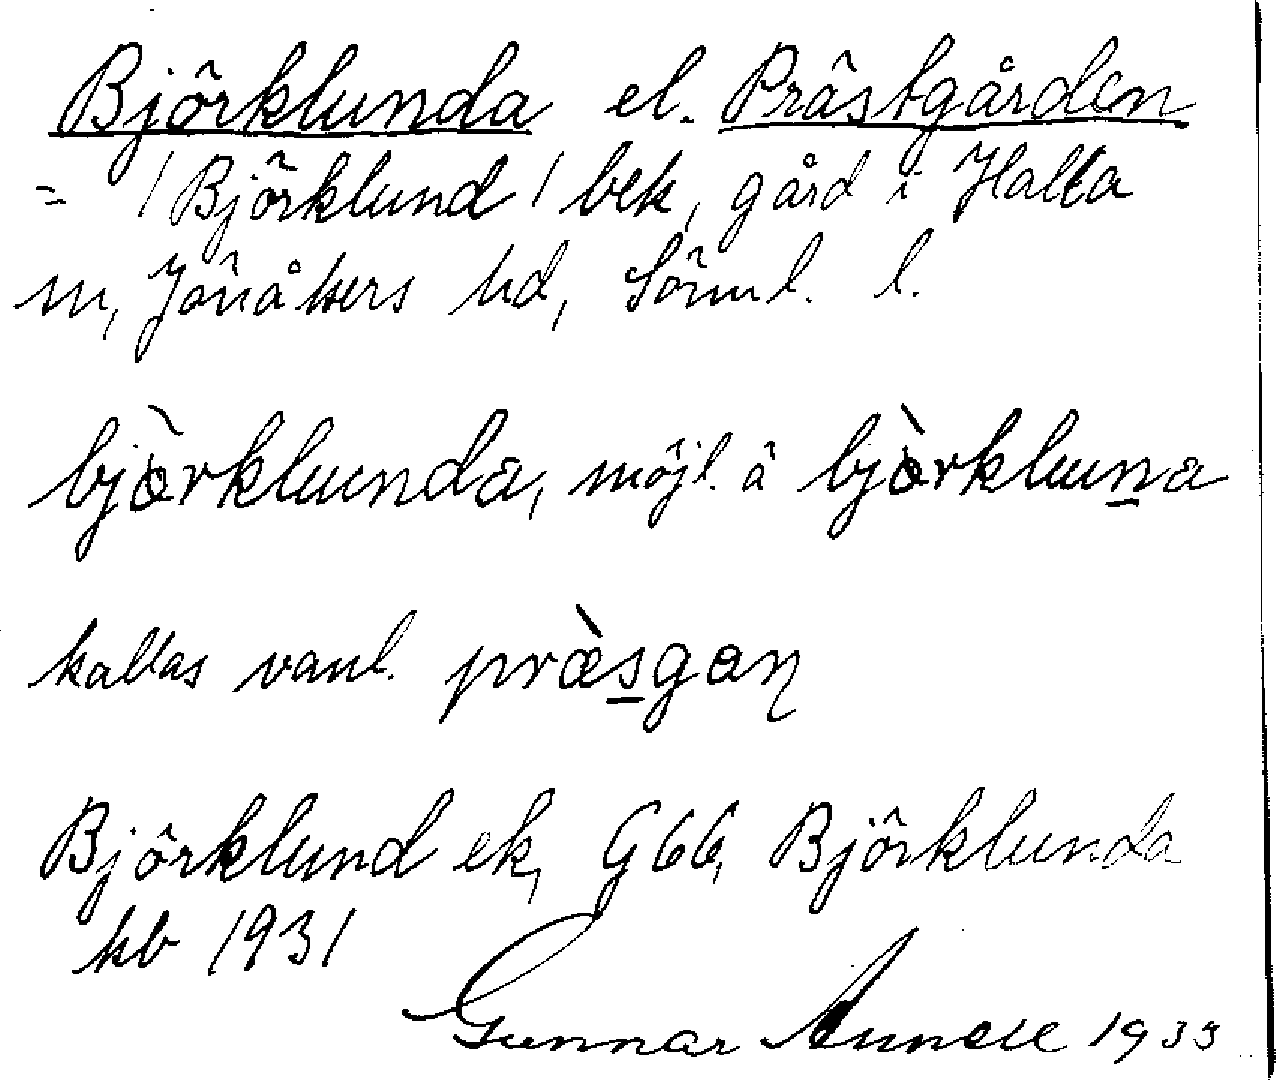 Björklunda el. Prästgården
= / Björklund / bek, gård i Halla
sn, Jönåkers hd, Sörml. l.
bjòrklunda, möjl. å bjòrkluna
kallas vanl. præ̀sgaɳ
Björklund ek, G66, Björklunda
kb 1931
Gunnar Annell 1933